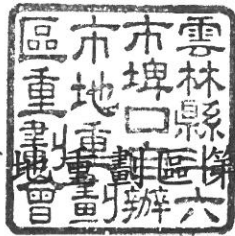 雲林縣斗六
市埤口自辦
市地重劃
區重劃會